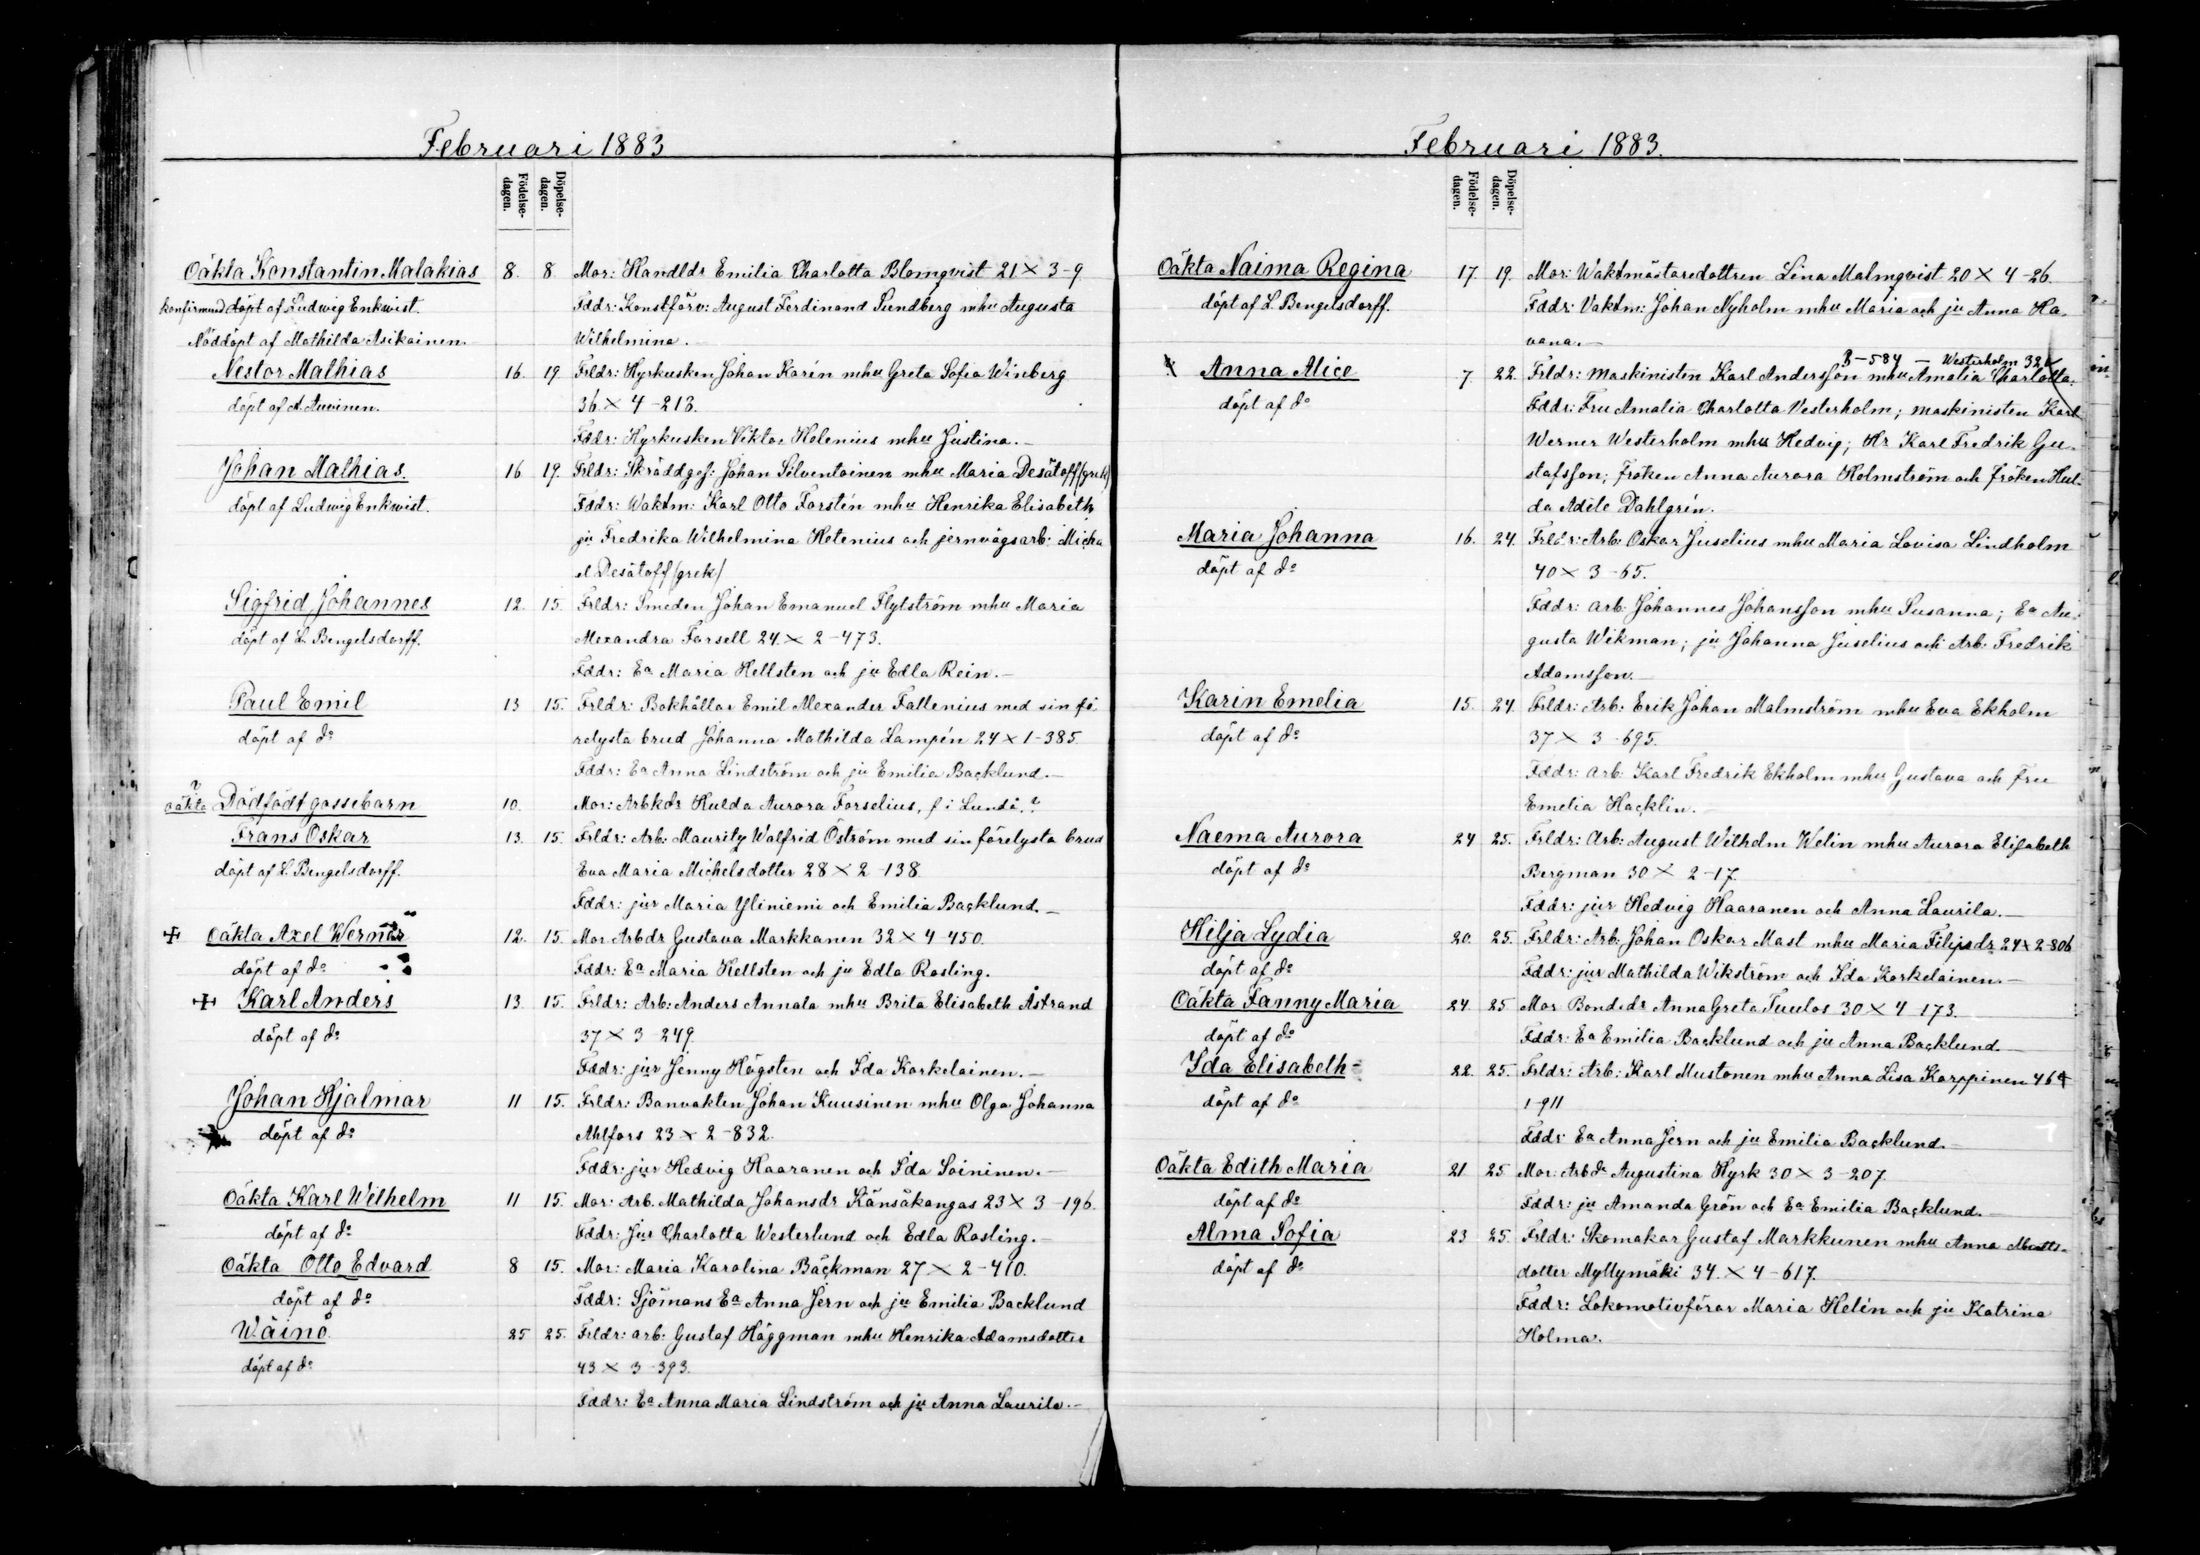 Februari 1883
Födelse-dagen. Döpelse-dagen.
Oäkta Konstantin Malakias 8. 8 Mor: Handldr Emilia Charlotta Blomqvist 21 × 3-9
konfirmand döpt af Ludwig Enkvist. Fddr: Konstförv: August Ferdinand Sundberg mhu Augusta
Nöddöpt af Mathilda Asikainen. Wilhelmina.
Nestor Mathias 16. 19 Frldr: Hyrkusken Johan Karén mhu Greta Sofia Winberg
döpt af A. Auvinen. 36 × 4-213.
Fddr: Hyrkusken Viktor Helenius mhu Justina.
Johan Mathias. 16 19. Frldr: Skräddges: Johan Silventoinen mhu Maria Desätoff (grek)
döpt af Ludwig Enkvist. Fddr: Waktm: Karl Otto Forstén mhu Henrika Elisabeth
ju Fredrika Wilhelmina Helenius och jernvägsarb: Micha
el Desätoff (grek)
Sigfrid Johannes 12. 15. Frldr: Smeden Johan Emanuel Flytström mhu Maria
döpt af L. Bengelsdorff. Alexandra Forsell 24 × 2-473.
Fddr: Ea Maria Hellsten och ju Edla Rein.
Paul Emil 13 15. Frldr: Bokhållar Emil Alexander Fallenius med sin fö
döpt af do relysta brud Johanna Mathilda Lampén 24 × 1-385.
Fddr: Ea Anna Lindström och ju Emilia Backlund.
? oäkta Dödfödt gossebarn 10. Mor: Arbkdr Hulda Aurora Forselius, f i Lundo.?
Frans Oskar 13. 15. Frldr: Arb: Mauritz Walfrid Öström med sin förelysta brud
döpt af L. Bengelsdorff. Eva Maria Michelsdotter 28 × 2-138.
Fddr: jur Maria Yliniemi och Emilia Backlund.
Oäkta Axel Werner 12. 15. Mor Arbdr Gustava Markkanen 32 × 4-450.
döpt af do Fddr: Ea Maria Hellsten och ju Edla Rosling.
Karl Anders 13. 15. Frldr: Arb: Anders Annala mhu Brita Elisabeth Åstrand
döpt af do 37 × 3-249.
Fddr: jur Jenny Högsten och Ida Korkelainen.
Johan Hjalmar 11 15. Frldr: Banvakten Johan Kuusinen mhu Olga Johanna
döpt af do Ahlfors 23 × 2-832.
Fddr: jur Hedvig Haaranen och Ida Soininen.
Oäkta Karl Wilhelm 11 15. Mor: Arb. Mathilda Johansdr Känsäkangas 23 × 3-196.
döpt af do Fddr: Jur Charlotta Westerlund och Edla Rosling.
Oäkta Otto Edvard 8 15. Mor: Maria Karolina Bäckman 27 × 2-410.
döpt af do Fddr: Sjömans Ea Anna Jern och ju Emilia Backlund
Wäinö 25 25. Frldr: arb: Gustaf Häggman mhu Henrika Adamsdotter
döpt af do 43 × 3-393.
Fddr: Ea Anna Maria Lindström och ju Anna Laurila.
Februari 1883.
Födelse-dagen. Döpelse-dagen.
Oäkta Naima Regina 17. 19. Mor: Waktmästaredottren Lina Malmqvist 20 × 4-26.
döpt af L. Bengelsdorff. Fddr: Vaktm: Johan Nyholm mhu Maria och ju Anna Ha
vana.
3-584 - Westerholm 32 ×
Anna Alice 7. 22. Frldr: Maskinisten Karl Andersson mhu Amalia Charlotta
döpt af do Fddr: Fru Amalia Charlotta Vesterholm; maskinisten Karl
Werner Westerholm mhu Hedvig; Hr Karl Fredrik Gu-
stafsson; fröken Anna Aurora Holmström och fröken Hul-
da Adéle Dahlgrén.
Maria Johanna 16. 24. Frldr: Arb: Oskar Juselius mhu Maria Lovisa Lindholm
döpt af do 40 × 3-65.
Fddr: arb: Johannes Johansson mhu Susanna; Ea Au-
gusta Wikman; ju Johanna Juselius och Arb: Fredrik
Adamsson.
Karin Emelia 15. 24. Frldr: Arb: Erik Johan Malmström mhu Eva Ekholm
döpt af do 37 × 3-695.
Fddr: arb: Karl Fredrik Ekholm mhu Gustava och Fru
Emelia Hacklin.
Naema Aurora 24 25. Frldr: Arb: August Wilhelm Welin mhu Aurora Elisabeth
döpt af do Bergman 30 × 2-17.
Fddr: jur Hedvig Haaranen och Anna Laurila.
Hilja Lydia 20. 25. Frldr: Arb: Johan Oskar Mast mhu Maria Filipsdr 24 × 2-806
döpt af do Fddr: jur Mathilda Wikström och Ida Korkelainen.
Oäkta Fanny Maria 24. 25 Mor Bondedr Anna Greta Tuulos 30 × 4-173.
döpt af do Fddr: Ea Emilia Backlund och ju Anna Backlund.
Ida Elisabeth 22. 25. Frldr: Arb: Karl Mustonen mhu Anna Lisa Karppinen 46 ×
döpt af do 1-911
Fddr: Ea Anna Jern och ju Emilia Backlund.
Oäkta Edith Maria 21 25 Mor: Arbdr Augustina Hyrk 30 × 3-207.
döpt af do Fddr: ju Amanda Grön och Ea Emilia Backlund.
Alma Sofia 23 25. Frldr: Skomakar Gustaf Markkunen mhu Anna Matts-
döpt af do dotter Myllymäki 34. × 4-617.
Fddr: Lokomotivförar Maria Helén och ju Katrina
Holma.